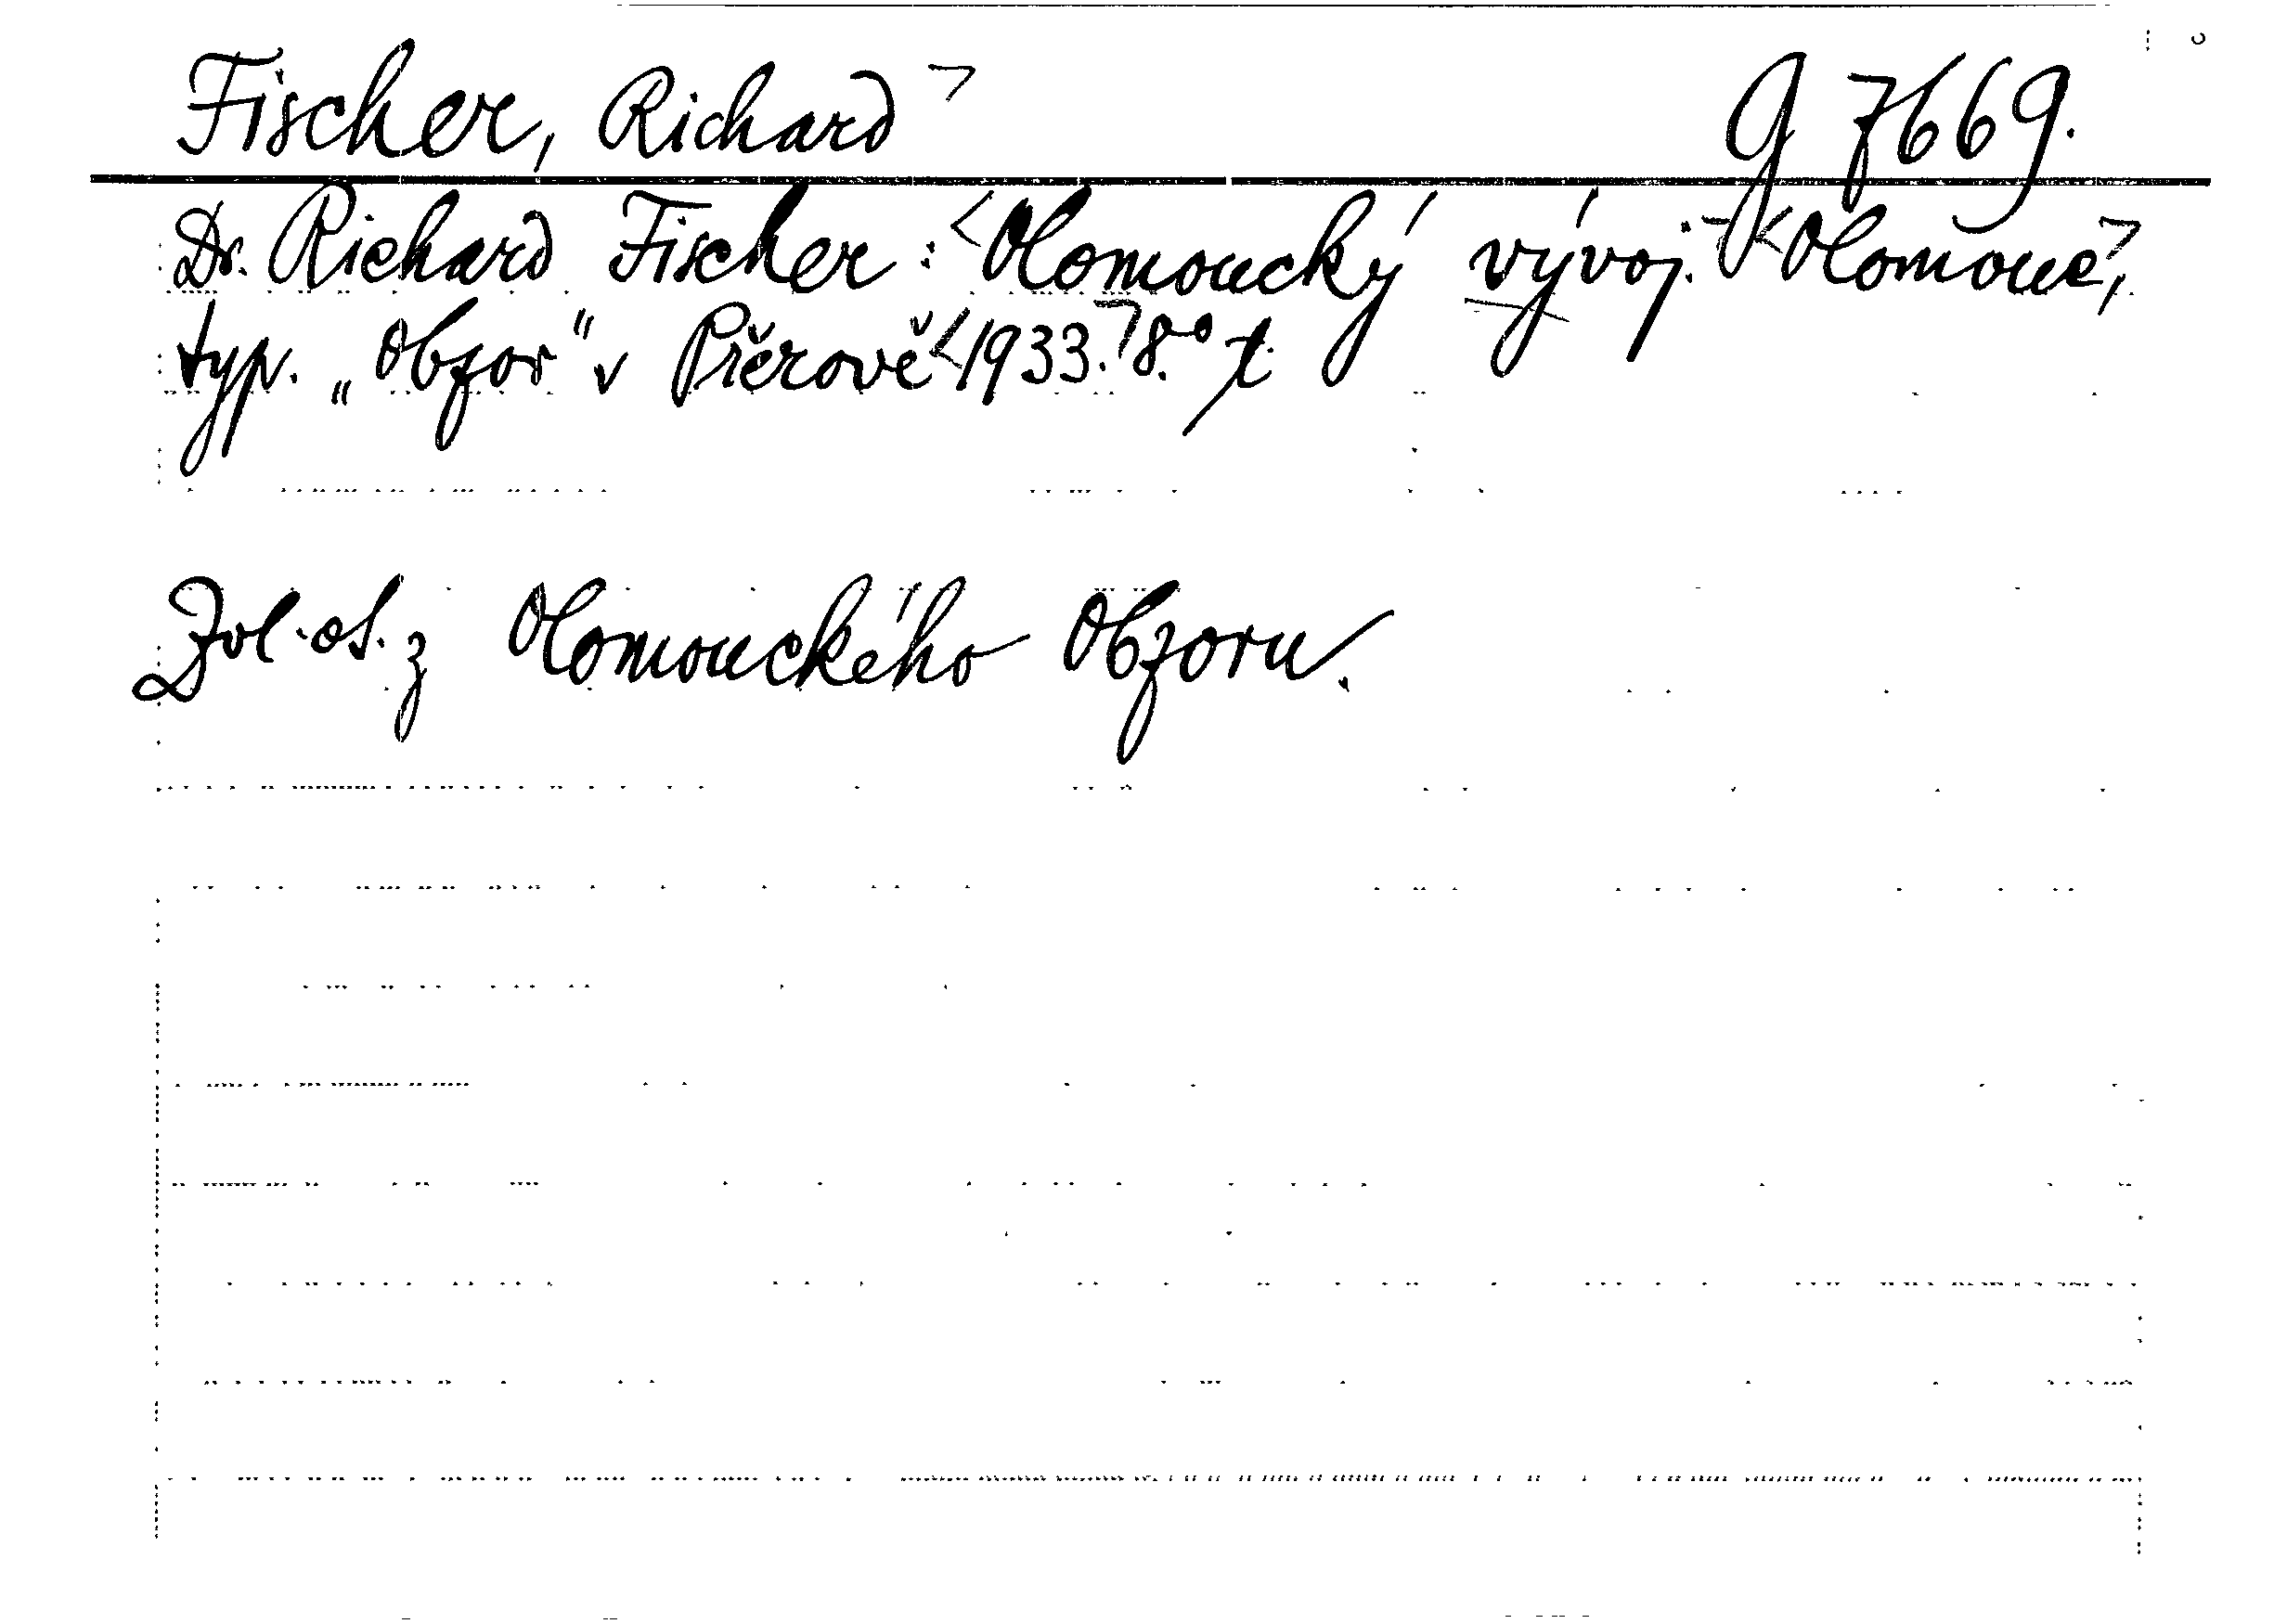 Fischer, Richard ㄱ g 7669.
Dr. Richard Fischer: <Olomoucký vývoj.ㄱ <Olomouc,ㄱ
typ. „Obzor" v Přerově <1933.ㄱ 8.° t.
Zvl. ot. z Olomouckého Obzoru.